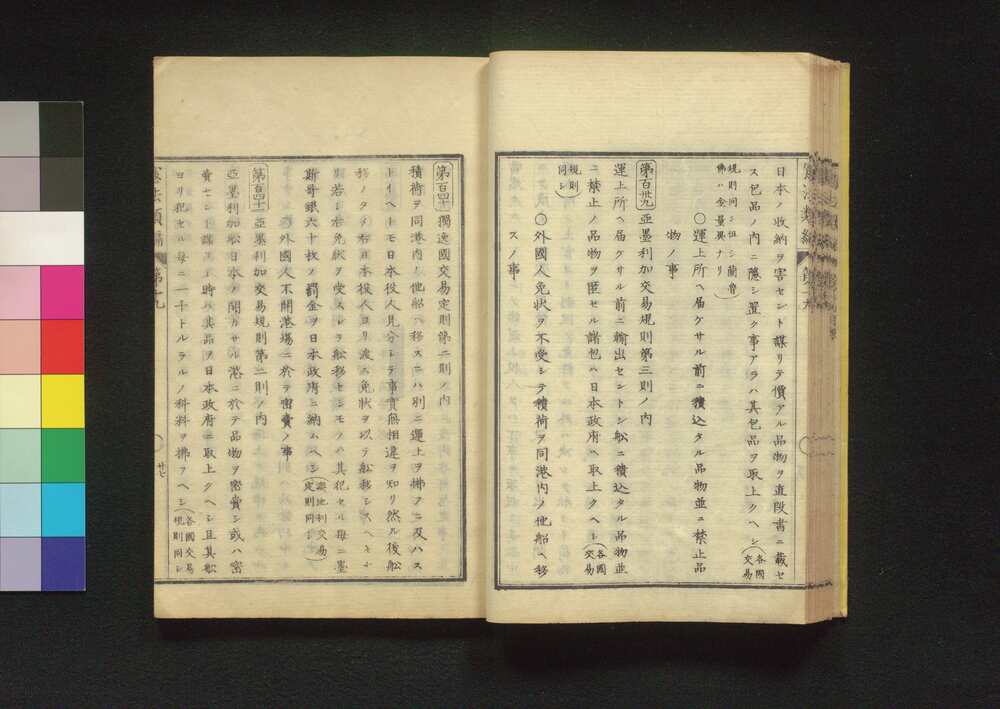 日本ノ收納ヲ害セント謀リテ價アル品物ヲ直段書ニ載セ
ス包品ノ内ニ隱シ置ク事アラハ其包品ヲ取上クヘシ(各國交易
規則同シ但シ蘭會佛ハ金量異ナリ)
○運上所ヘ届ケサル前ニ積込タル品物並ニ禁止品
物ノ事
第百卅九 亞墨利加交易規則第三則ノ内
運上所ヘ届ケサル前ニ輸出セントシ船ニ積込タル品物並
ニ禁止ノ品物ヲ匿セル諸包ハ日本政府ヘ取上クヘシ(各國交易
規則同シ)
○外國人免狀ヲ不受シテ積荷ヲ同港内ノ他船ヘ移
スノ事
第百四十 獨逸國交易定則第二則ノ内
積荷ヲ同港内ノ他船ヘ移スニハ別ニ運上ヲ拂フニ及ハス
トイヘトモ日本役人見分シテ事實無相違ヲ知リ然ル後船
移ノタメ右日本役人ヨリ渡ス免狀ヲ以テ船移シスヘキナ
リ若シ右免狀ヲ受スシテ船移セシモノハ其犯セル毎ニ墨
斯哥銀六十枚ノ罰金ヲ日本政府ニ納ムヘシ(澳地利交易定則同シ)
○外國人不開港場ニ於テ密賣ノ事
第百四十一 亞墨利加交易規則第二則ノ内
亞墨利加船日本ノ開カサル港ニ於テ品物ヲ密賣シ或ハ密
賣セント謀ル時ハ其品ヲ日本政府ニ取上クヘシ且其船
ヨリ犯セル毎ニ一千ドルラルノ科料ヲ拂フヘシ(各國交易規則同シ
憲法類編 第十九
廿七